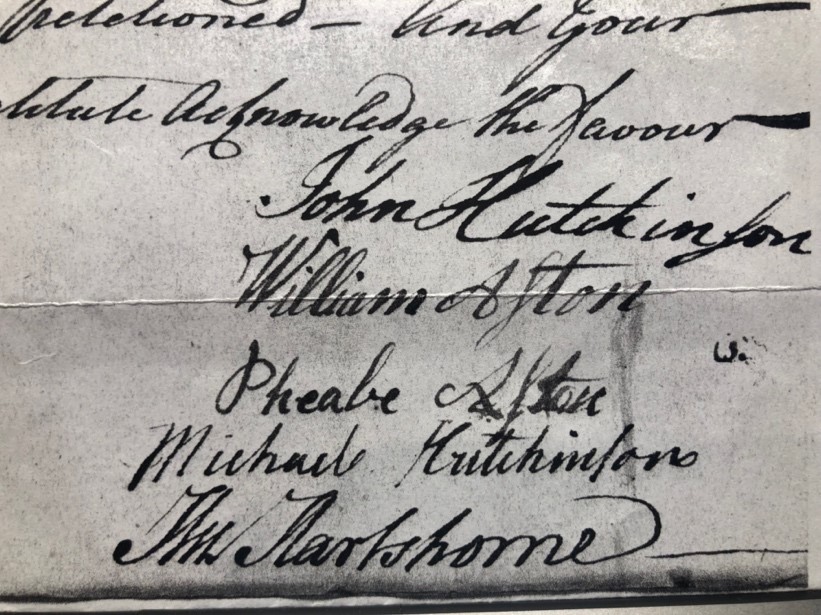 petitioned — And Your
Acknowledge the favour
John Hutchinson
William Aston
Pheabe Aston
Michael Hutchinson
Hartshorne